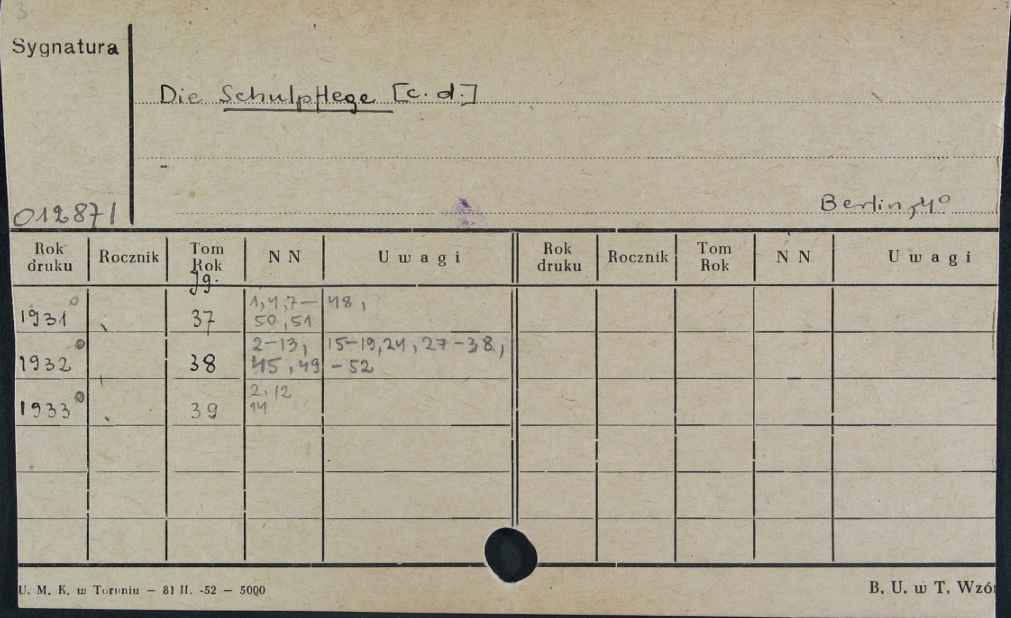 3
Sygnatura
Die Schulpflege [c. d.]
Berlin, 4°
012871
Rok druku Rocznik Tom Rok NN Uwagi Rok druku Rocznik Tom Rok NN Uwagi
Jg.
1931° 37 1,4,7–48,
50,51
1932° 38 2–13, 15–19,24, 27–38,
45, 49–52
1933° 39 2, 12
14
U. M. K. w Toruniu – 81 II. -52 – 5000
B. U. w T. Wzó